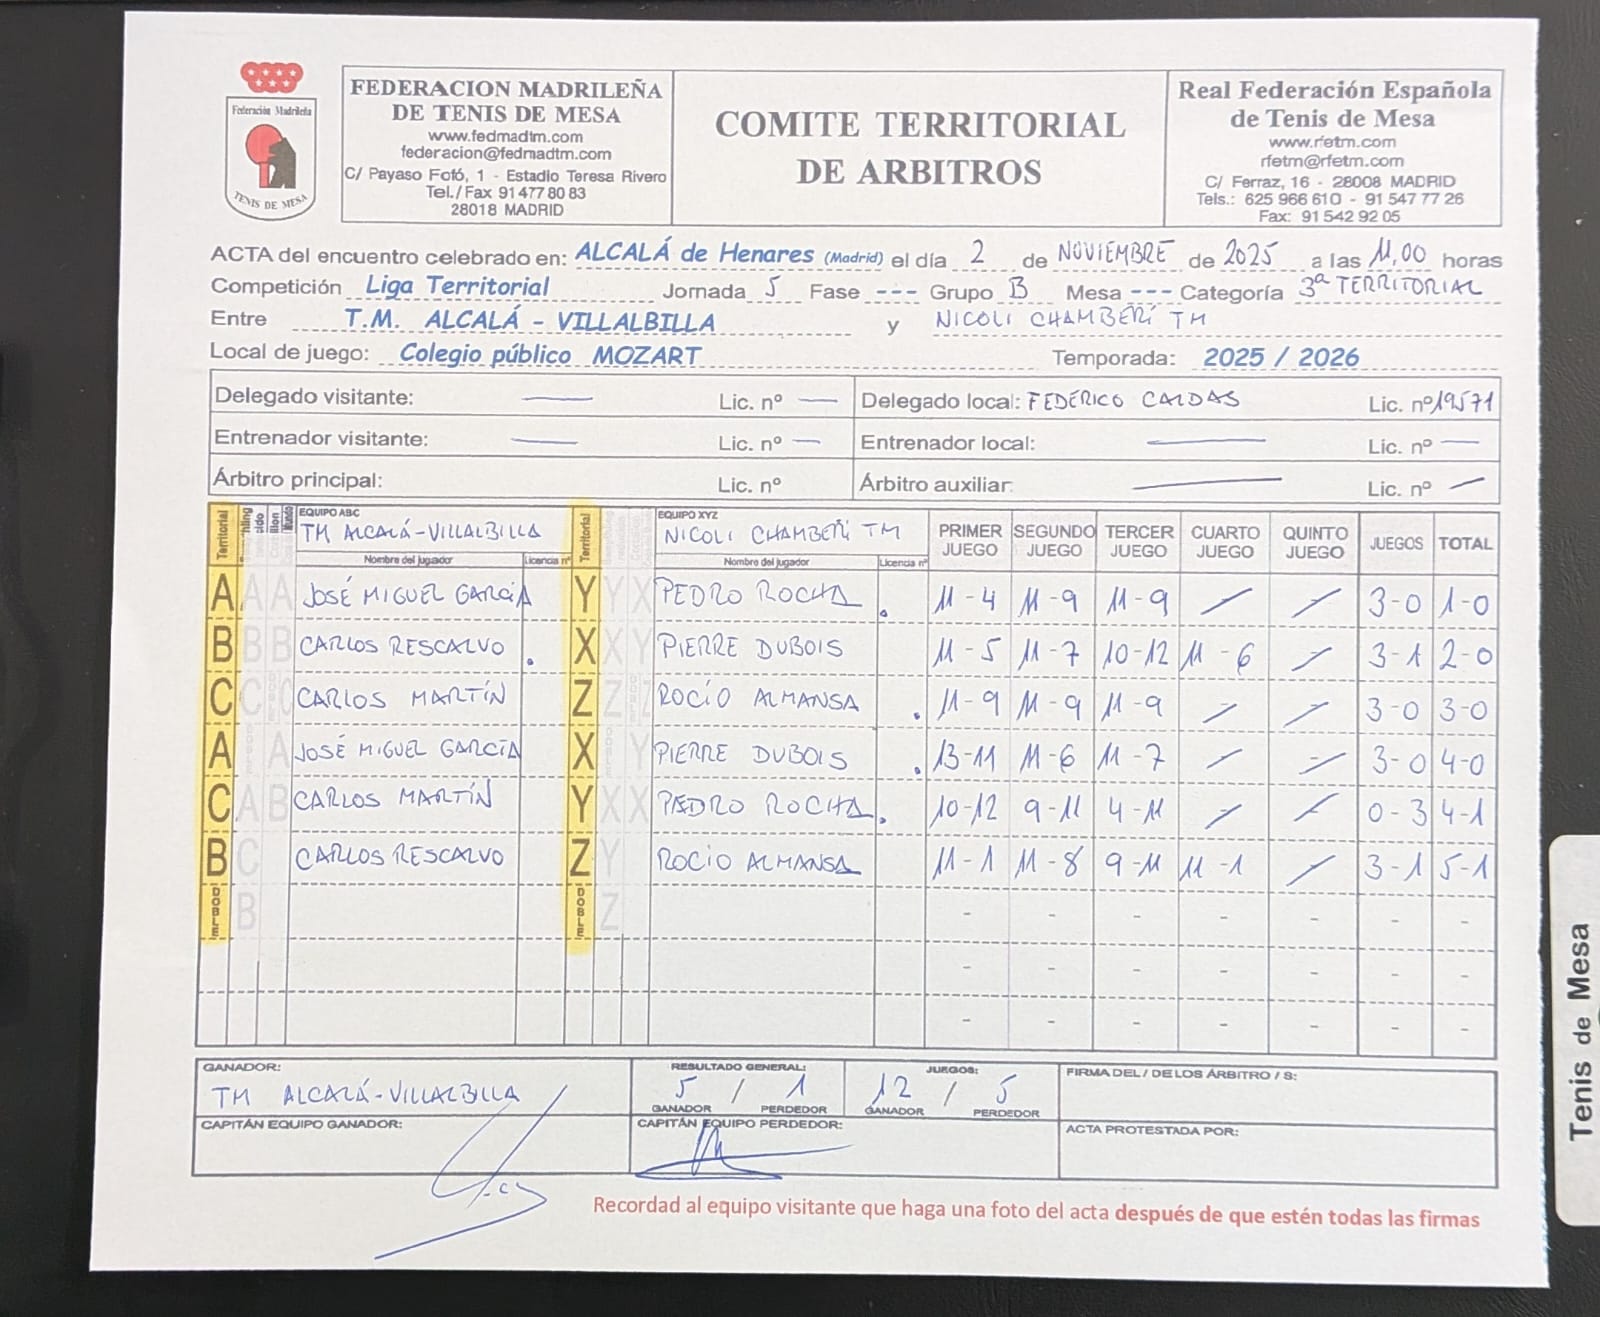 Federación Madrileña
TENIS DE MESA
FEDERACION MADRILEÑA
DE TENIS DE MESA
www.fedmadtm.com
federacion@fedmadtm.com
C/ Payaso Fofó, 1 - Estadio Teresa Rivero
Tel./Fax 91 477 80 83
28018 MADRID
COMITE TERRITORIAL
DE ARBITROS
Real Federación Española
de Tenis de Mesa
www.rfetm.com
rfetm@rfetm.com
C/ Ferraz, 16 - 28008 MADRID
Tels.: 625 966 610 - 91 547 77 26
Fax: 91 542 92 05
ACTA del encuentro celebrado en: ALCALÁ de Henares (Madrid) el día 2 de NOVIEMBRE de 2025 a las 11,00 horas
Competición Liga Territorial Jornada 5 Fase --- Grupo B Mesa --- Categoría 3ª TERRITORIAL
Entre T.M. ALCALÁ - VILLALBILLA y NICOLI CHAMBERÍ TM
Local de juego: Colegio público MOZART Temporada: 2025 / 2026
Delegado visitante: — Lic. nº — Delegado local: FEDERICO CALDAS Lic. nº 19571
Entrenador visitante: — Lic. nº — Entrenador local: — Lic. nº —
Árbitro principal: Lic. nº Árbitro auxiliar: — Lic. nº —
Territorial EQUIPO ABC Territorial EQUIPO XYZ
TM ALCALÁ-VILLALBILLA NICOLI CHAMBERÍ TM PRIMER JUEGO SEGUNDO JUEGO TERCER JUEGO CUARTO JUEGO QUINTO JUEGO JUEGOS TOTAL
Nombre del jugador Licencia nº Nombre del jugador Licencia nº
A A A JOSÉ MIGUEL GARCÍA Y Y X PEDRO ROCHA . 11-4 11-9 11-9 / / 3-0 1-0
B B B CARLOS RESCALVO . X X Y PIERRE DUBOIS 11-5 11-7 10-12 11-6 / 3-1 2-0
C C C CARLOS MARTÍN Z Z Z ROCÍO ALMANSA . 11-9 11-9 11-9 / / 3-0 3-0
A A JOSÉ MIGUEL GARCÍA X Y PIERRE DUBOIS . 13-11 11-6 11-7 / / 3-0 4-0
C A B CARLOS MARTÍN Y X X PEDRO ROCHA . 10-12 9-11 4-11 / / 0-3 4-1
B C CARLOS RESCALVO Z Y ROCIO ALMANSA 11-1 11-8 9-11 11-1 / 3-1 5-1
DOBLE B DOBLE Z - - - - - - -
- - - - - - -
- - - - - - -
GANADOR: RESULTADO GENERAL: JUEGOS: FIRMA DEL / DE LOS ÁRBITRO / S:
TM ALCALÁ-VILLALBILLA 5 / 1 12 / 5
GANADOR PERDEDOR GANADOR PERDEDOR
CAPITÁN EQUIPO GANADOR: CAPITÁN EQUIPO PERDEDOR: ACTA PROTESTADA POR:
Recordad al equipo visitante que haga una foto del acta después de que estén todas las firmas
Tenis de Mesa